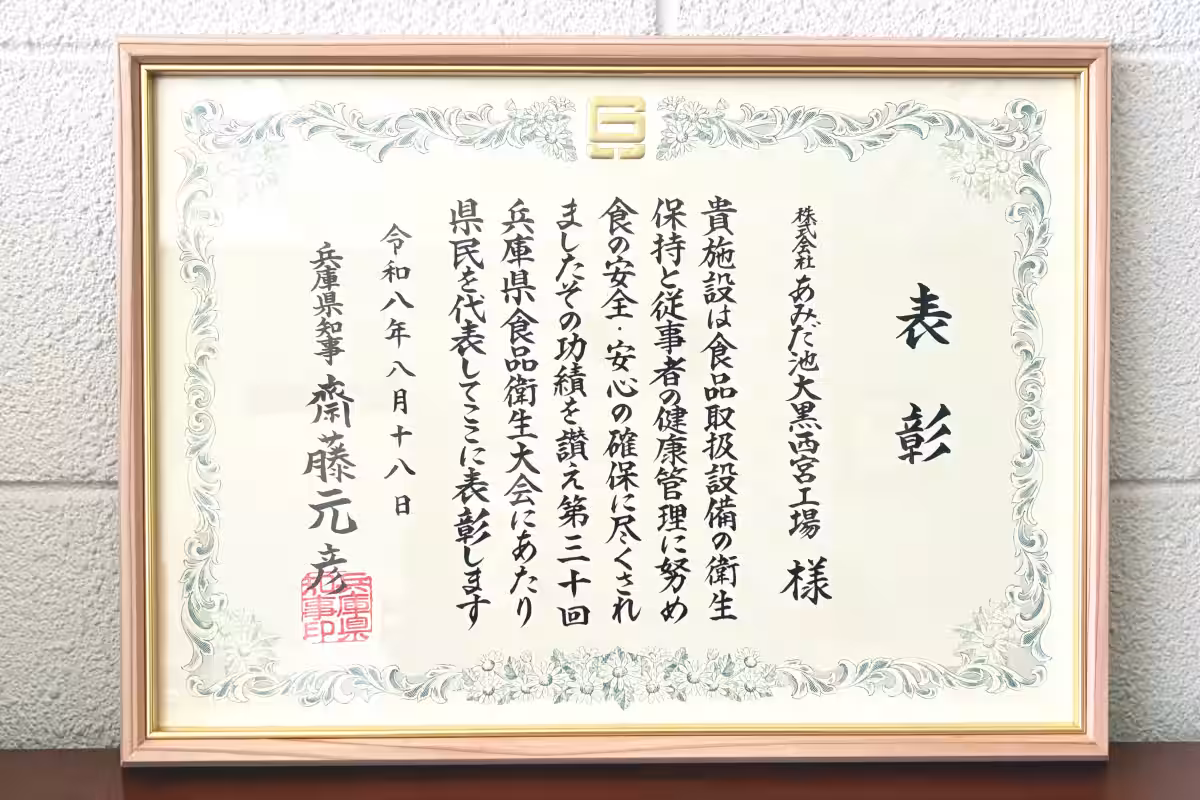 表彰
株式会社あみだ池大黒西宮工場 様
貴施設は食品取扱設備の衛生
保持と従事者の健康管理に努め
食の安全・安心の確保に尽くされ
ましたその功績を讃え第三十回
兵庫県食品衛生大会にあたり
県民を代表してここに表彰します
令和八年八月十八日
兵庫県知事 齋藤元彦
兵庫県
知事印